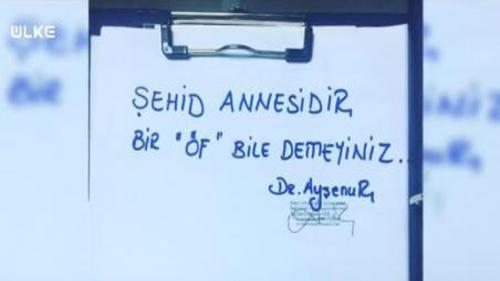 ÜLKE
ŞEHİD ANNESİDİR,
BİR "ÖF" BİLE DEMEYİNİZ..
Dr. Ayşenur